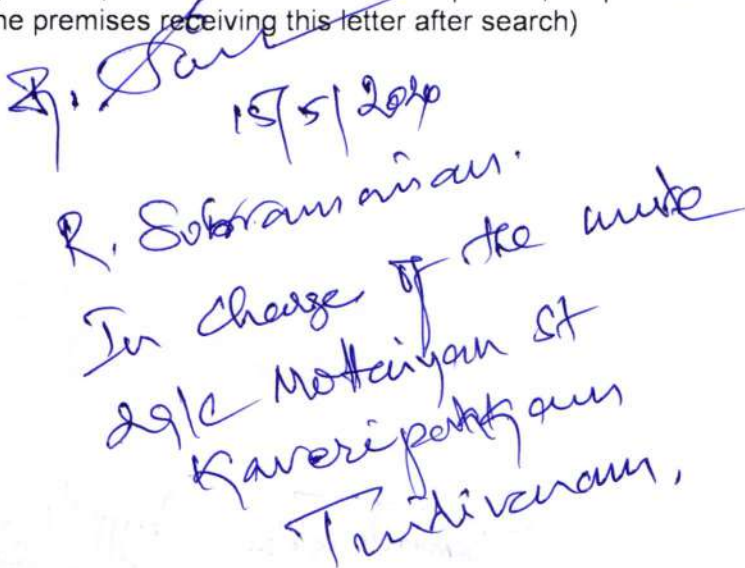 he premises receiving this letter after search)
R. 
15/5/2020
R. Subramanian.
In charge of the
29/C Mottaiyan St
Kaveripakkam
Tindivanam,